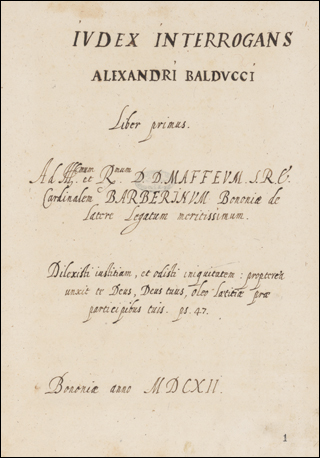 IVDEX INTERROGANS
ALEXANDRI BALDVCCI
Liber primus.
Ad Illmum et Rmum D. D. MAFFEVM S.R.E.
Cardinalem BARBERINVM Bononiæ de
latere Legatum meritissimum.
Dilexisti iustitiam, et odisti iniquitatem: propterea
unxit te Deus, Deus tuus, oleo lætitiæ præ
participibus tuis. ps. 47.
Bononiæ anno MDCXII.
1